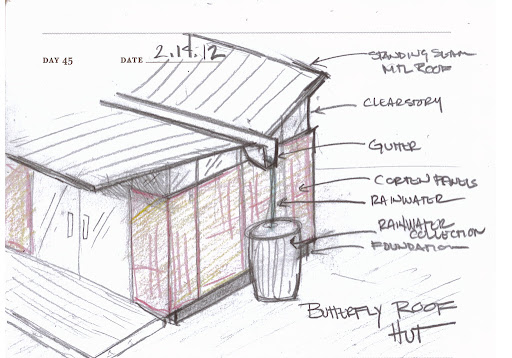 DAY 45 DATE 2.14.12
STANDING SEAM
MTL ROOF
CLEARSTORY
GUTTER
CORTEN PANELS
RAINWATER
RAINWATER
COLLECTION
FOUNDATION
BUTTERFLY ROOF
HUT